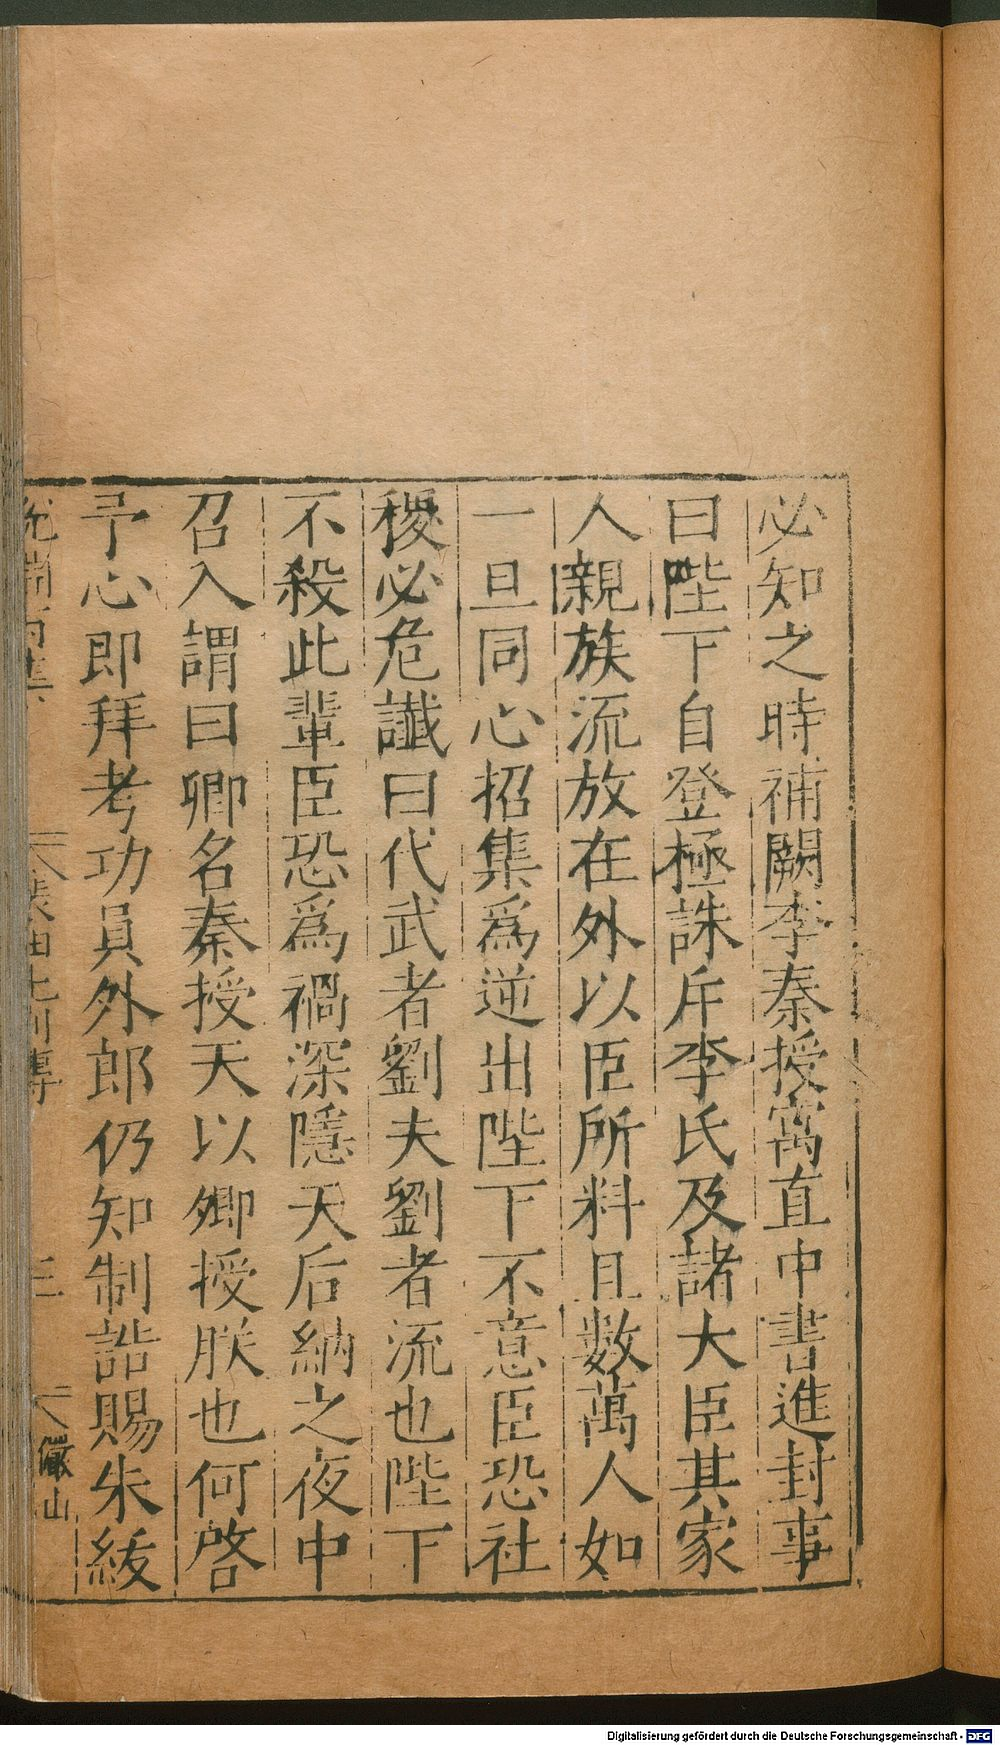 必知之時補闕李秦授寓直中書進封事
曰陛下自登極誅斥李氏及諸大臣其家
人親族流放在外以臣所料且數萬人如
一旦同心招集爲逆出陛下不意臣恐社
稷必危讖曰代武者劉夫劉者流也陛下
不殺此輩臣恐爲禍深隱天后納之夜中
召入謂曰卿名秦授天以卿授朕也何啓
予心即拜考功員外郎仍知制誥賜朱紱
三
儼山
Digitalisierung gefördert durch die Deutsche Forschungsgemeinschaft - DFG